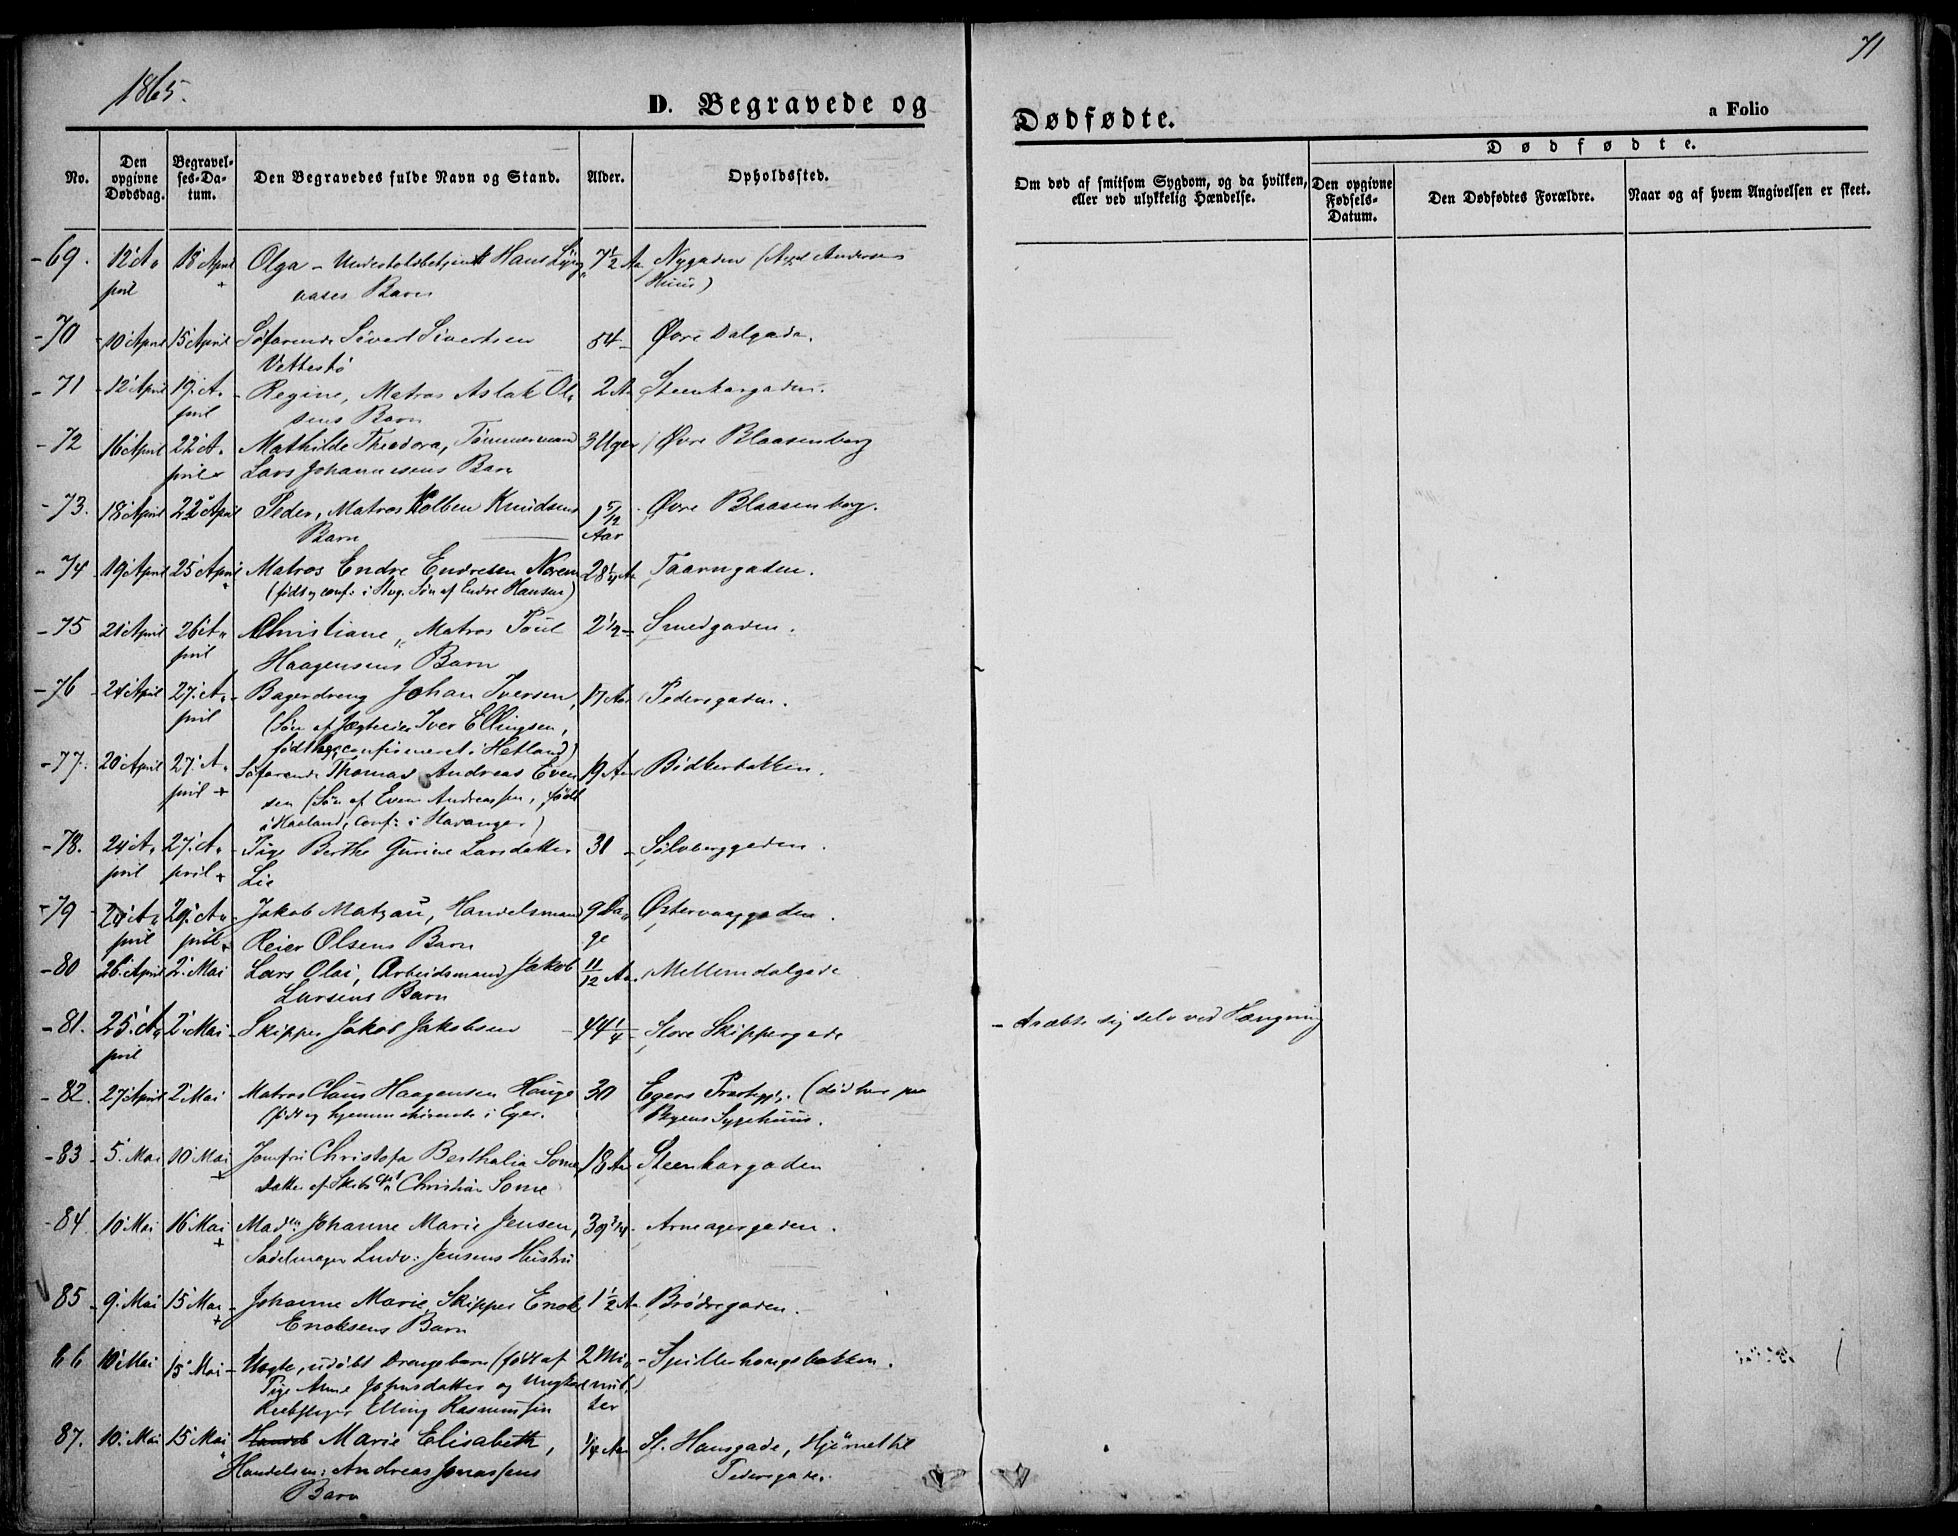 1865.
71
D. Begravede og
Dødfødte.
a Folio
No.
Den opgivne Dødsdag.
Begravelses-Datum.
Den Begravedes fulde Navn og Stand.
Alder.
Opholdssted.
Om død af smitsom Sygdom, og da hvilken,
eller ved ulykkelig Hændelse.
Dødfødte.
Den opgivne Fødsels-Datum.
Den Dødfødtes Forældre.
Naar og af hvem Angivelsen er skeet.
-69. 12' A" 18' April Olga - Hans 7 1/2 Aa Nygaden (
pril Barn Huus)
-70 10' April 15' April Søfarende Sivert Sivertsen 54 - Øvre Dalgade.
Vettestø
-71 12' April 19' A" - Regine, Matros Aslak Ol" 2 Aa Steenkargaden.
pril sens Barn
-72 16' April 22' A" Mathilde Theodora, Tømmermand 3 Uger Øvre Blaasenborg
pril Lars Johannesens Barn
-73. 18' April 22' April Peder, Matros Kolben Knudsens 1 5/12 Øvre Blaasenborg.
Barn Aar
-74 19' April 25' April Matros Endre Endresen Norem 28 1/4 Aa Taarngaden.
(født og conf: i Stvg. Søn af Endre Hansen)
-75 21' April 26' A" Christiane, Matros Poul 2 1/2 - Smedgaden.
pril Haagensens Barn
-76 24' April 27' A" - Bagerdreng Johan Iversen, 17 Aar Pedersgaden.
pril (Søn af Iver Ellingsen,
født her, confirmeret i Hetland)
-77. 20' April 27' A" Søfarende Thomas Andreas Even 19 Aar Bødkerbakken.
pril sen (Søn af Even Andreassen, født
i Haaland, conf: i Stavanger)
-78. 24' A" 27' A" - Pige Berthe Gurine Larsdatter 31 - Sølvberggaden.
pril pril Lie
-79 20' A" 29' A" - Jakob Matzau, Handelsmand 9 Da" Østervaaggaden.
pril pril Reier Olsens Barn ge
-80 26' April 2' Mai Lars Olai, Arbeidsmand Jakob 11/12 Aa. Mellemdalgade
Larsens Barn
-81. 25' A" 2' Mai - Skipper Jakob Jakobsen 44 1/4 Store Skippergade - dræbte sig selv ved Hængning
pril
-82. 27' April 2' Mai Matros Claus Haagensen Hauge 30 Egers Præstegj. (død her paa
født og hjemmehørende i Eger. Byens Sygehuus.
-83 5' Mai 10' Mai Jomfru Christofa Berthalia Somme 18 Aar Steenkargaden
Datter af Skibs Christian Somme
-84. 10' Mai 16' Mai Mad^m Johanne Marie Jensen, 39 3/4 - Arneagergaden.
Sadelmager Ludv: Jensens Hustru
-85 9' Mai 15' Mai - Johanne Marie, Skipper Enok 1 1/2 Aa Brødregaden.
Enoksens Barn
86 10' Mai 15' Mai - Uægte, udøbt Drengebarn (født af 2 Mi" - Spilderhaugsbakken.
Pige Anne Johnsdatter og Ungkarl nut
Reebslager Elling Rasmussen) ter
87. 10' Mai 15' Mai Handels Marie Elisabeth, 1/4 Aar St. Hansgade, Hjørnet til
Handelsm: Andreas Jonassens Pedersgade.
Barn